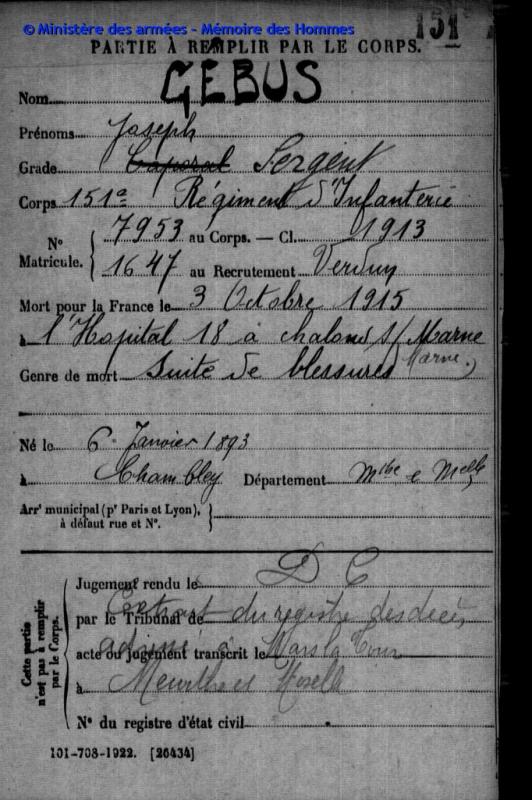 © Ministère des armées - Mémoire des Hommes
151
PARTIE À REMPLIR PAR LE CORPS.
Nom GEBUS
Prénoms Joseph
Grade Caporal Sergent
Corps 151e Régiment d'Infanterie
N° Matricule. 7953 au Corps. — Cl. 1913
1647 au Recrutement Verdun
Mort pour la France le 3 Octobre 1915
à l'Hopital 18 à chalons s/ Marne
(Marne)
Genre de mort Suite de blessures
Né le 6 Janvier 1893
à Chambley Département Mthe e Melle
Arrt municipal (pr Paris et Lyon),
à défaut rue et N°.
Cette partie n'est pas à remplir par le Corps.
Jugement rendu le D C
par le Tribunal de Extrait du registre des décès
acte ou jugement transcrit le adressé à Mars la Tour
à Meurthe et Moselle
N° du registre d'état civil
101-708-1922. [26434]